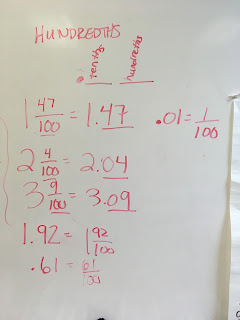 HUNDREDTHS
. tenths hundredths
1 47/100 = 1.47 .01 = 1/100
2 4/100 = 2.04
3 9/100 = 3.09
1.92 = 1 92/100
.61 = 61/100